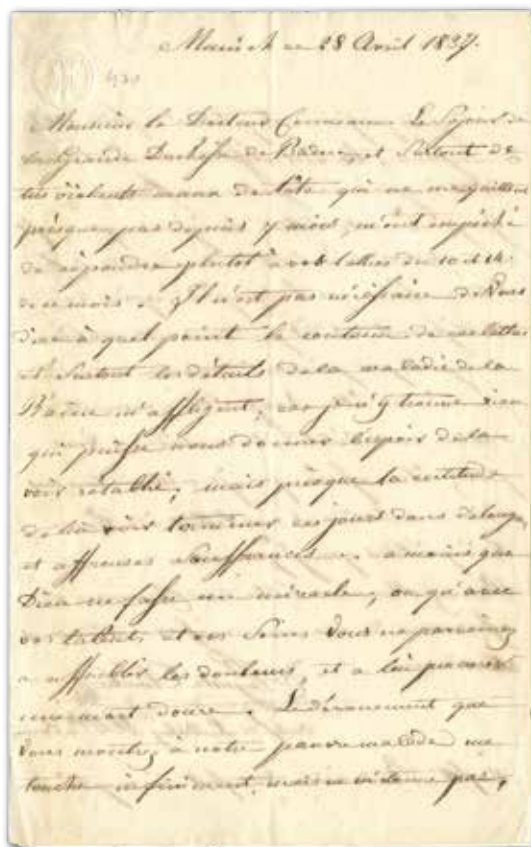 Munich ce 28 Avril 1837.
Monsieur le Docteur Conneau. Le Séjour de
la Grande Duchesse de Bade, et Surtout de
très violents maux de tête qui ne me quittent
presque pas depuis 7 mois, m'ont empêché
de répondre plutot à vos lettres du 10 et 14
de ce mois. Il n'est pas nécéssaire de Vous
dire à quel point le contenu de ces lettres
et Surtout les détails de la maladie de la
Reine m'affligent, car je n'y trouve rien
qui puisse nous donner l'espoir de la
voir rétablie, mais presque la certitude
de lui voir terminer ses jours dans de longues
et affreuses Souffrances. a moins que
Dieu ne fasse un miracle, ou qu'avec
vos talents et vos Soins Vous ne parveniez
a affaiblir les douleurs, et a lui procurer
une mort douce. Le dévouement que
Vous montrez à notre pauvre malade me
touche infiniment, mais ne m'étonne pas,